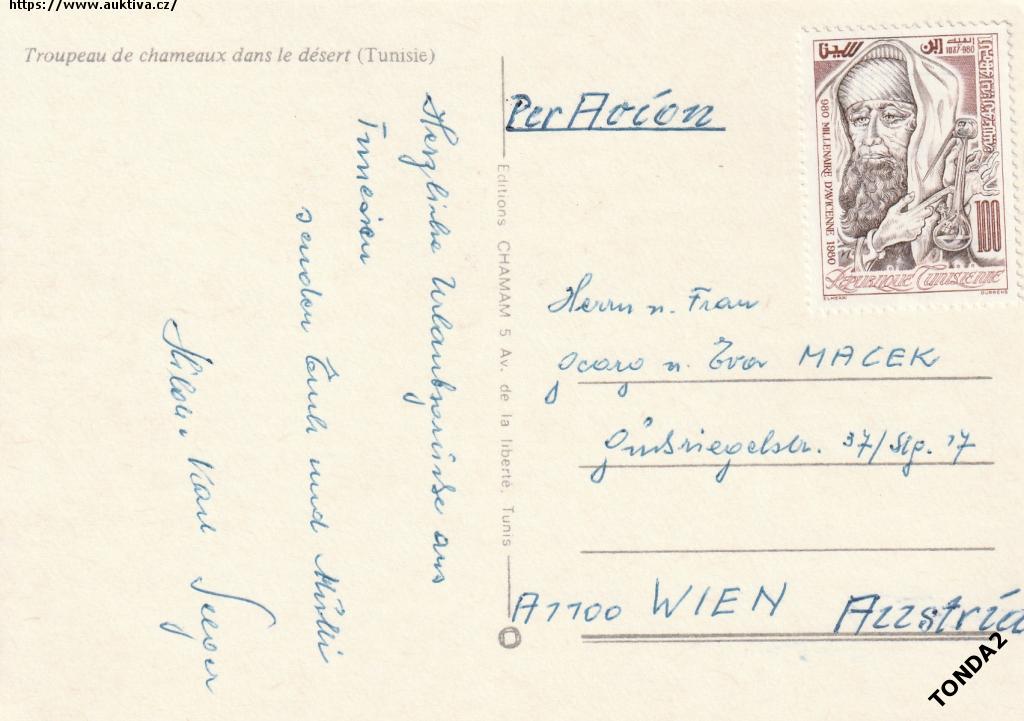 https://www.auktiva.cz/
Troupeau de chameaux dans le désert (Tunisie)
Herzliche Urlaubsgrüsse aus
Tunesien
senden Euch und
Hilde u. Karl
Editions CHAMAM 5 Av. de la liberté. Tunis
Per Avion
ابن سينا
1037-980
980 MILLENAIRE D'AVICENNE 1980
100
REPUBLIQUE TUNISIENNE
ELMEKKI
Herrn u. Frau
u. Eva MACEK
37/Stg. 17
A1100 WIEN Austria
TONDA2